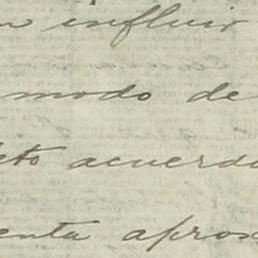 n influir
modo de
eto acuerdo
enta aprox